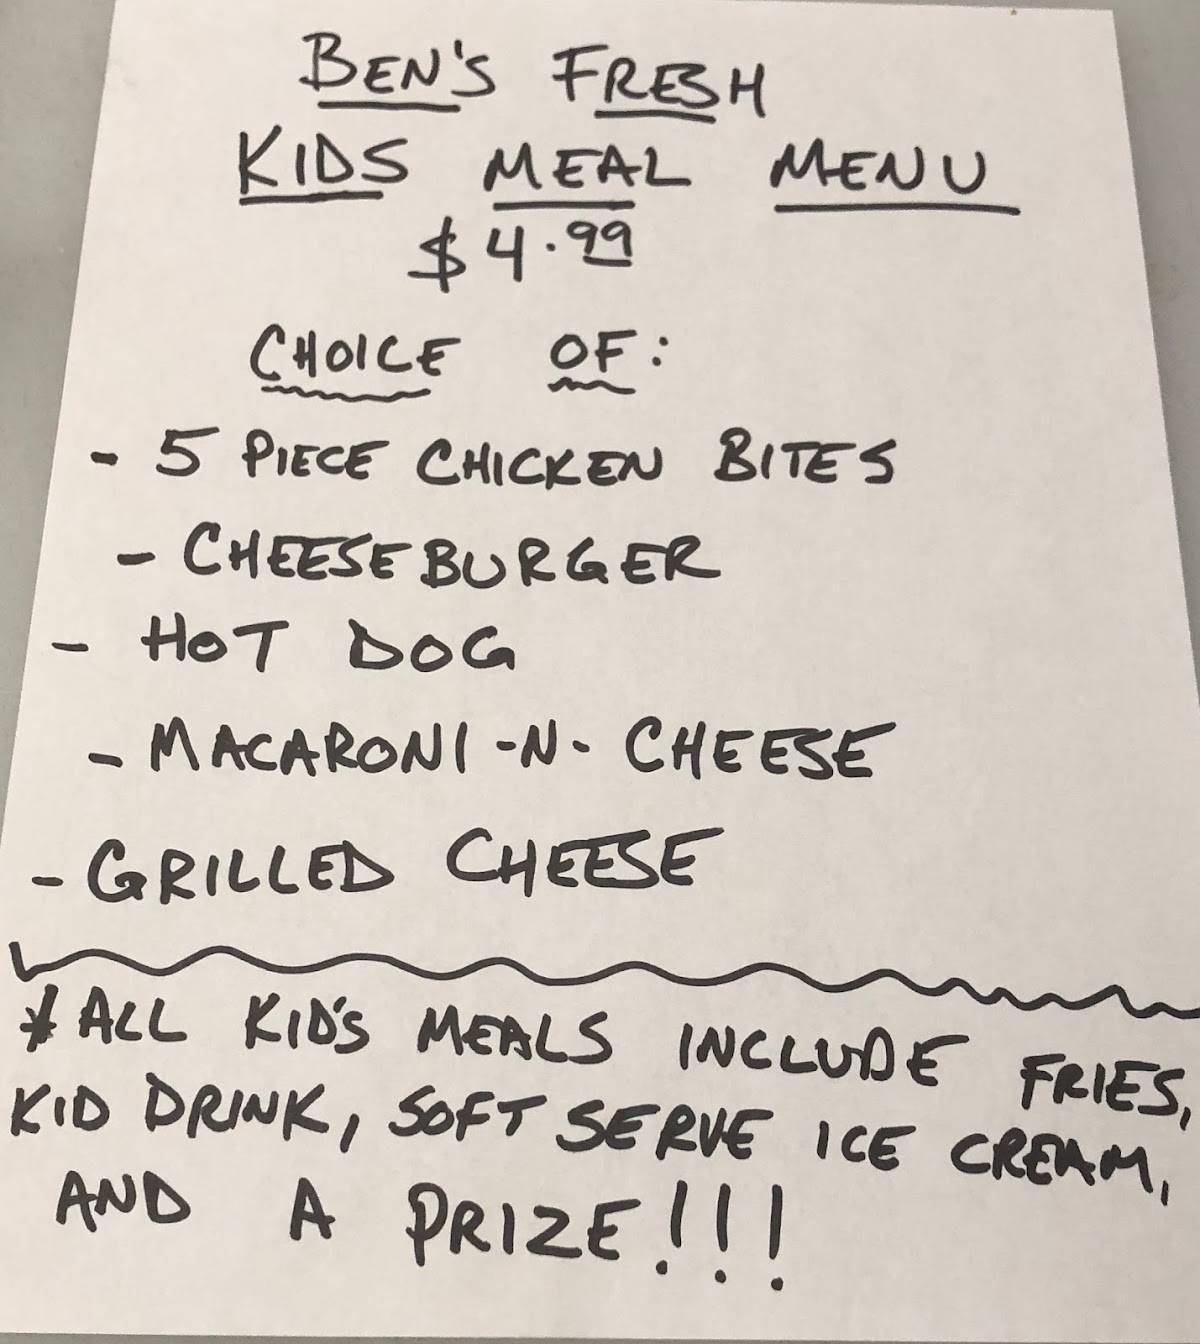 BEN'S FRESH
KIDS MEAL MENU
$4.99
CHOICE OF:
- 5 PIECE CHICKEN BITES
- CHEESEBURGER
- HOT DOG
- MACARONI-N-CHEESE
- GRILLED CHEESE
* ALL KID'S MEALS INCLUDE FRIES,
KID DRINK, SOFT SERVE ICE CREAM,
AND A PRIZE!!!